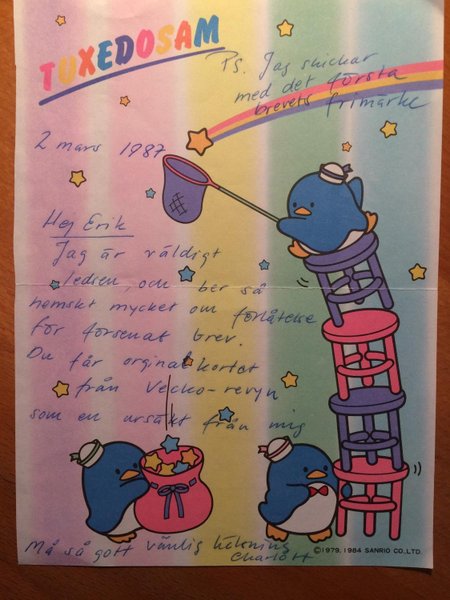 TUXEDOSAM
Ps. Jag skickar
med det första
brevets frimärke
2 mars 1987
Hej Erik
Jag är väldigt
ledsen, och ber så
hemskt mycket om förlåtelse
för försenat brev.
Du får orginal kortet
från Vecko-revyn
som en ursäkt från mig
Må så gott vänlig hälsning
Charlott
©1979, 1984 SANRIO CO., LTD.